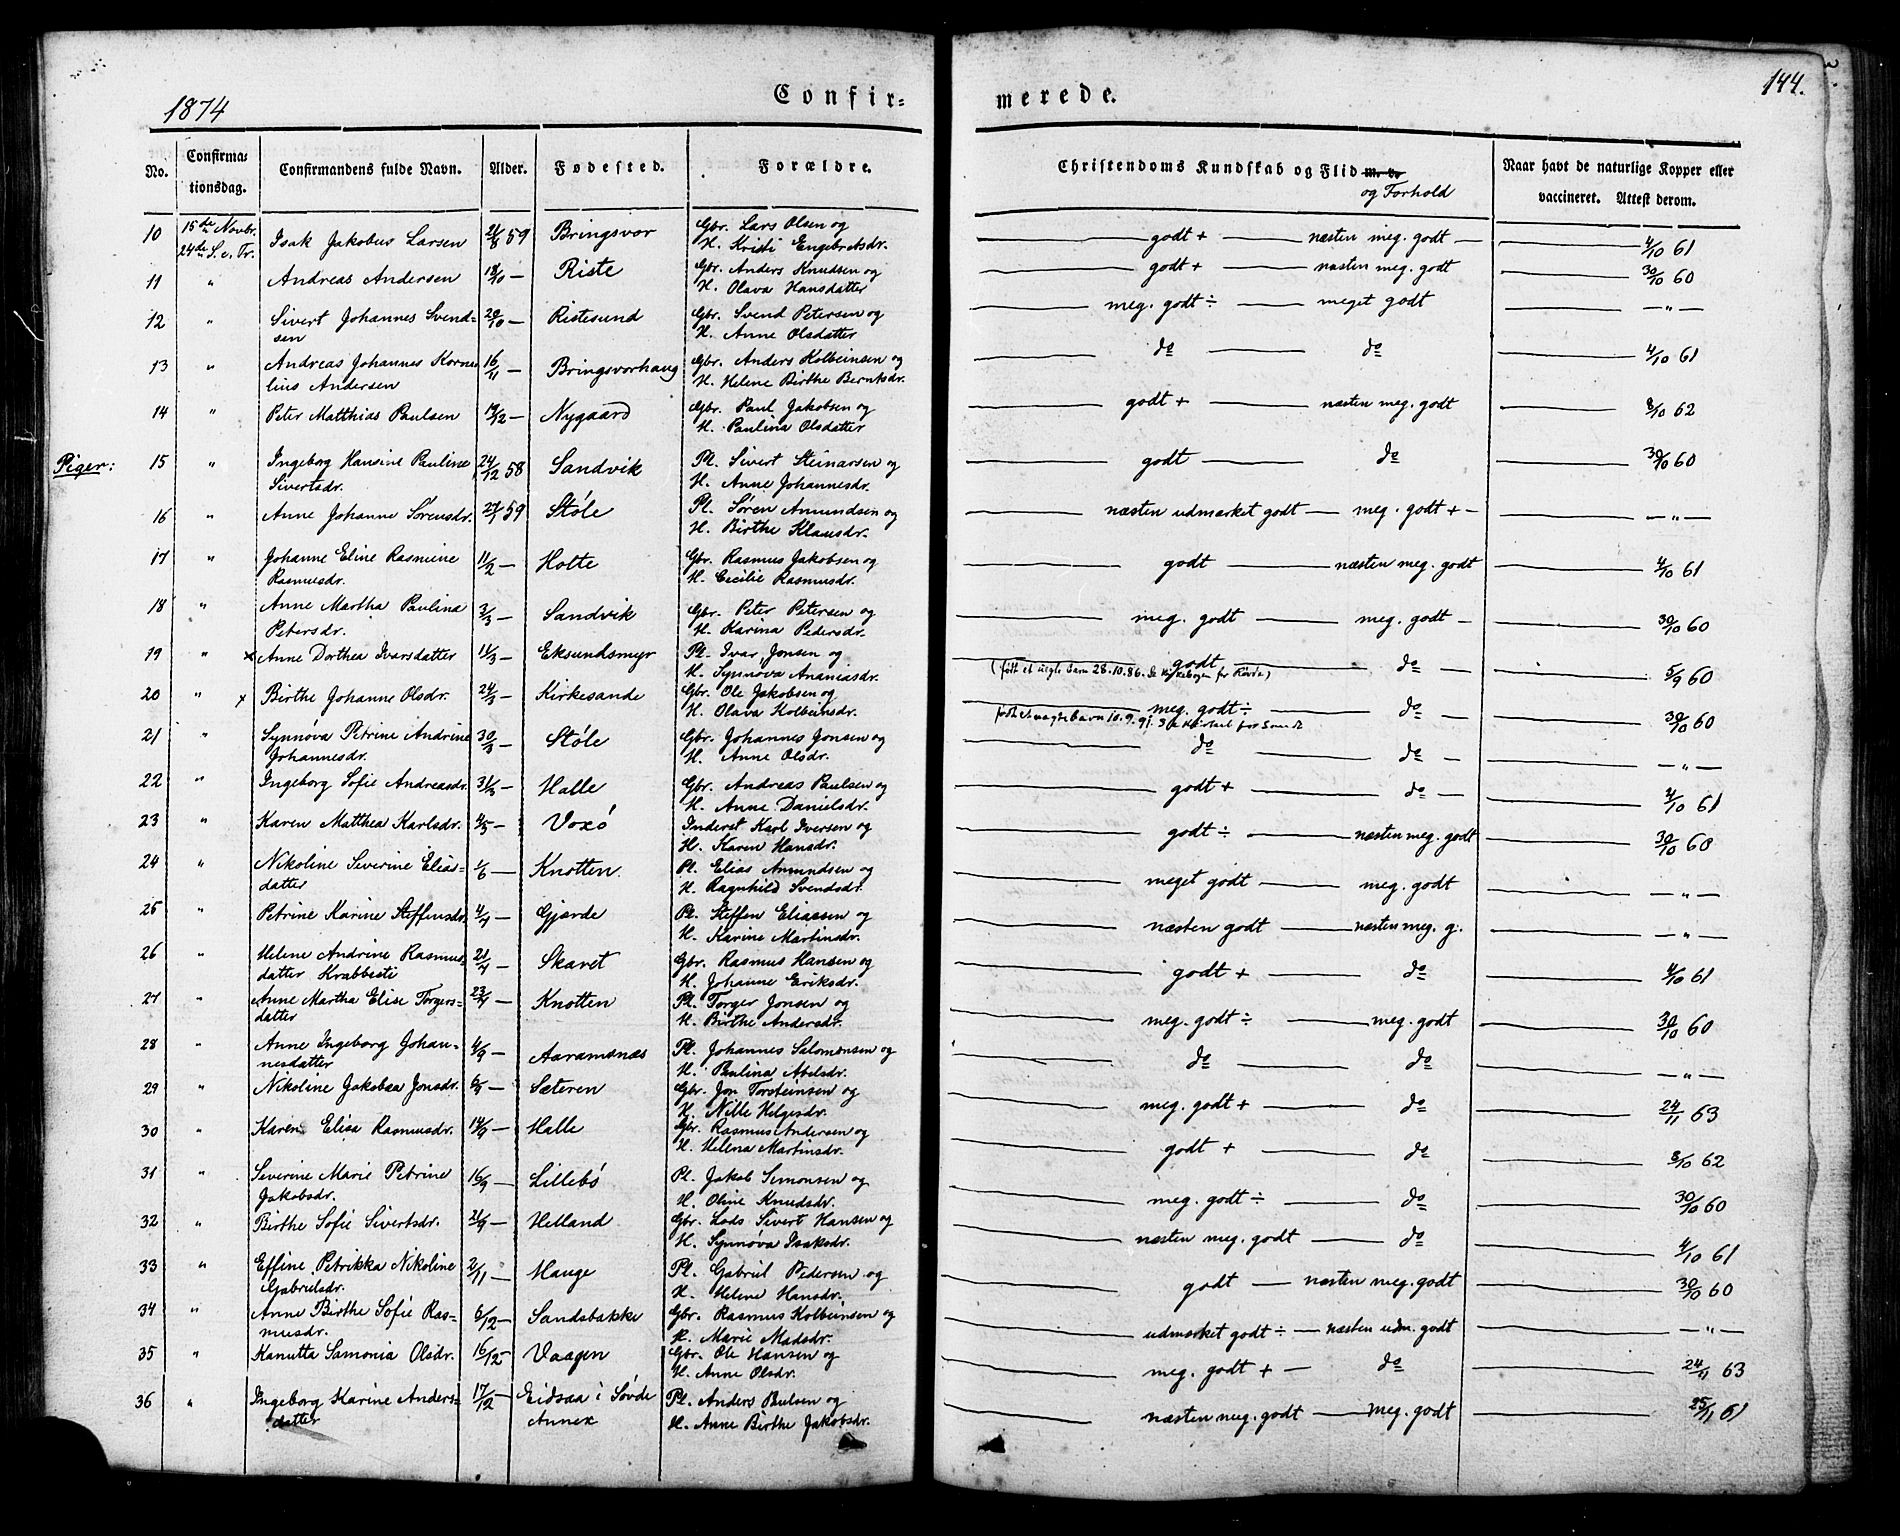 144.
1874
Confir=
merede.
No.
Confirma=
tionsdag.
Confirmandens fulde Navn.
Alder.
Fødested.
Forældre.
Christendoms Kundskab og Flid m. v.
og Forhold
Naar havt de naturlige Kopper eller
vaccineret. Attest derom.
10 15de Novbr. 24de S. e. Tr. Isak Jakobus Larsen 59 Bringsvor Gbr. Lars Olsen og
H. Kristi Engebretsdr. godt + næsten meg. godt 4/10 61
11 " Andreas Andersen 18/10 — Riste Gbr. Anders Knudsen og
H. Olava Hansdatter godt + næsten meg. godt 30/10 60
12 " Sivert Johannes Svend= 20/10 — Ristesund Gbr. Svend Petersen og
sen H. Anne Olsdatter meg. godt ÷ meget godt — " —
13 " Andreas Johannes Korne= 16/11 — Bringsvorhaug Gbr. Anders Kolbeinsen og
lius Andersen H. Helene Birthe Berntsdr. do do 4/10 61
14 " Peter Matthias Paulsen 14/12 — Nygaard Gbr. Paul Jakobsen og
H. Paulina Olsdatter godt + næsten meg. godt 8/10 62
Piger: 15 " Ingeborg Hansine Pauline 24/12 58 Sandvik Pl. Sivert Steinarsen og
Sivertsdr. H. Anne Johannesdr. godt do 30/10 60
16 " Anne Johanne Sørensdr. 27/1 59 Støle Pl. Søren Amundsen og
H. Birthe Klausdr. næsten udmærket godt — meg. godt + — — " —
17 " Johanne Eline Rasmine 11/2 — Holte Gbr. Rasmus Jakobsen og
Rasmusdr. H. Cecilie Rasmusdr. godt næsten meg. godt 4/10 61
18 " Anne Martha Paulina 3/3 — Sandvik Gbr. Peter Petersen og
Petersdr. H. Karina Pedersdr. meg. godt meg. godt 30/10 60
19 " x Anne Dorthea Ivarsdatter 11/3 — Eksundsmyr Pl. Ivar Jonsen og
H. Synnøva Ananiasdr. godt do 5/9 60
(født et uegte barn 28.10.86. se Kirkebogen for Røvde)
20 " x Birthe Johanne Olsdr. 24/3 — Kirkesande Gbr. Ole Jakobsen og
H. Olava Kolbeinsdr. meg. godt ÷ do 30/10 60
født et uægte barn 10.9.91.
21 " Synnøva Petrine Andrine 30/3 — Støle Gbr. Johannes Jonsen og
Johannesdr. H. Anne Olsdr. do do — " —
22 " Ingeborg Sofie Andreasdr. 31/3 — Halle Gbr. Andreas Paulsen og
H. Anne Danielsdr. godt + do 4/10 61
23 " Karen Matthea Karlsdr. 4/5 — Voxö Inderst Karl Iversen og
H. Karen Hansdr. godt ÷ næsten meg. godt 30/10 60
24 " Nikoline Severine Elias= 1/6 — Knotten Pl. Elias Amundsen og
datter H. Ragnhild Svendsdr. meget godt meg. godt — " —
25 " Petrine Karine Steffensdr. 4/7 — Gjærde Pl. Steffen Eliassen og
H. Karine Martinsdr. næsten godt næsten meg. g. — " —
26 " Helene Andrine Rasmus= 21/7 — Skaret Gbr. Rasmus Hansen og
datter Krabbesti H. Johanne Eriksdr. godt + do 4/10 61
27 " Anne Martha Elise Torgers= 23/7 — Knotten Pl. Torger Jonsen og
datter H. Birthe Andersdr. meg. godt ÷ meg. godt 30/10 60
28 " Anne Ingeborg Johan= 4/9 — Aaramsnæs Pl. Johannes Salomonsen og
nesdatter H. Paulina Abelsdr. do do — " —
29 " Nikoline Jakobea Jonsdr. 6/9 — Sæteren Gbr. Jon Torsteinsen og
H. Nille Helgesdr. meg. godt + do 24/11 63
30 " Karen Elisa Rasmusdr. 14/9 — Halle Gbr. Rasmus Andersen og
H. Helena Martinsdr. godt + do 8/10 62
31 " Severine Marie Petrine 16/9 — Lillebö Pl. Jakob Simonsen og
Jakobsdr. H. Oline Knudsdr. meg. godt ÷ do 30/10 60
32 " Birthe Sofie Sivertsdr. 21/9 — Helland Gbr. Lods Sivert Hansen og
H. Synnøva Isaksdr. næsten meg. godt do 4/10 61
33 " Effine Petrikka Nikoline 2/11 — Hauge Pl. Gabriel Pedersen og
Gabrielsdr. H. Helene Hansdr. godt — næsten meg. godt 30/10 60
34 " Anne Birthe Sofie Ras= 6/12 — Sandsbakke Gbr. Rasmus Kolbeinsen og
musdr. H. Marie Madsdr. udmærket godt ÷ — næsten udm. godt — " —
35 " Kanutta Samonia Olsdr. 16/12 Vaagen Gbr. Ole Hansen og
H. Anne Olsdr. meg. godt + — do 24/11 63
36 " Ingeborg Karine Anders= 17/12 — Eidsaa i Søvde Pl. Anders Paulsen og
datter Annex H. Anne Birthe Jakobsdr. næsten meg. godt — meg. godt 25/11 61